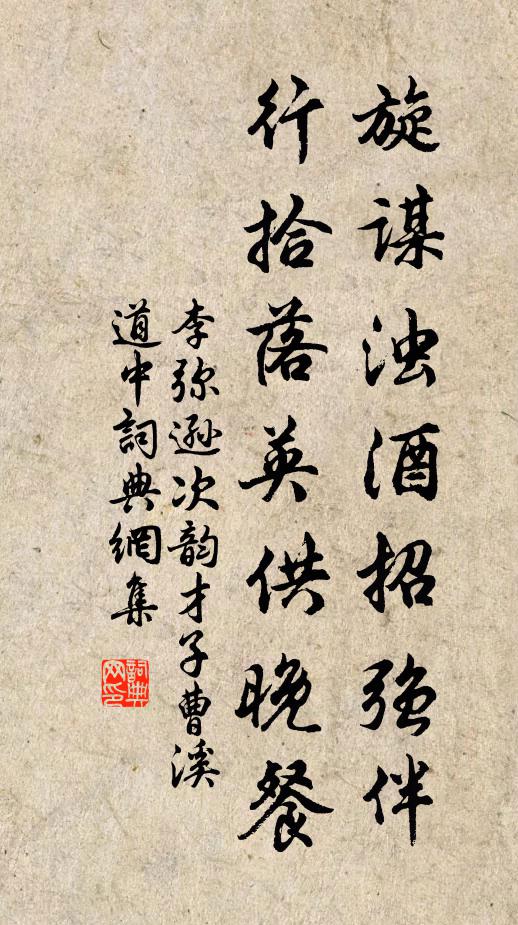 旋谋浊酒招强伴
行拾落英供晚餐
李弥逊次韵才子曹溪
道中詞典網集
詞典
网印